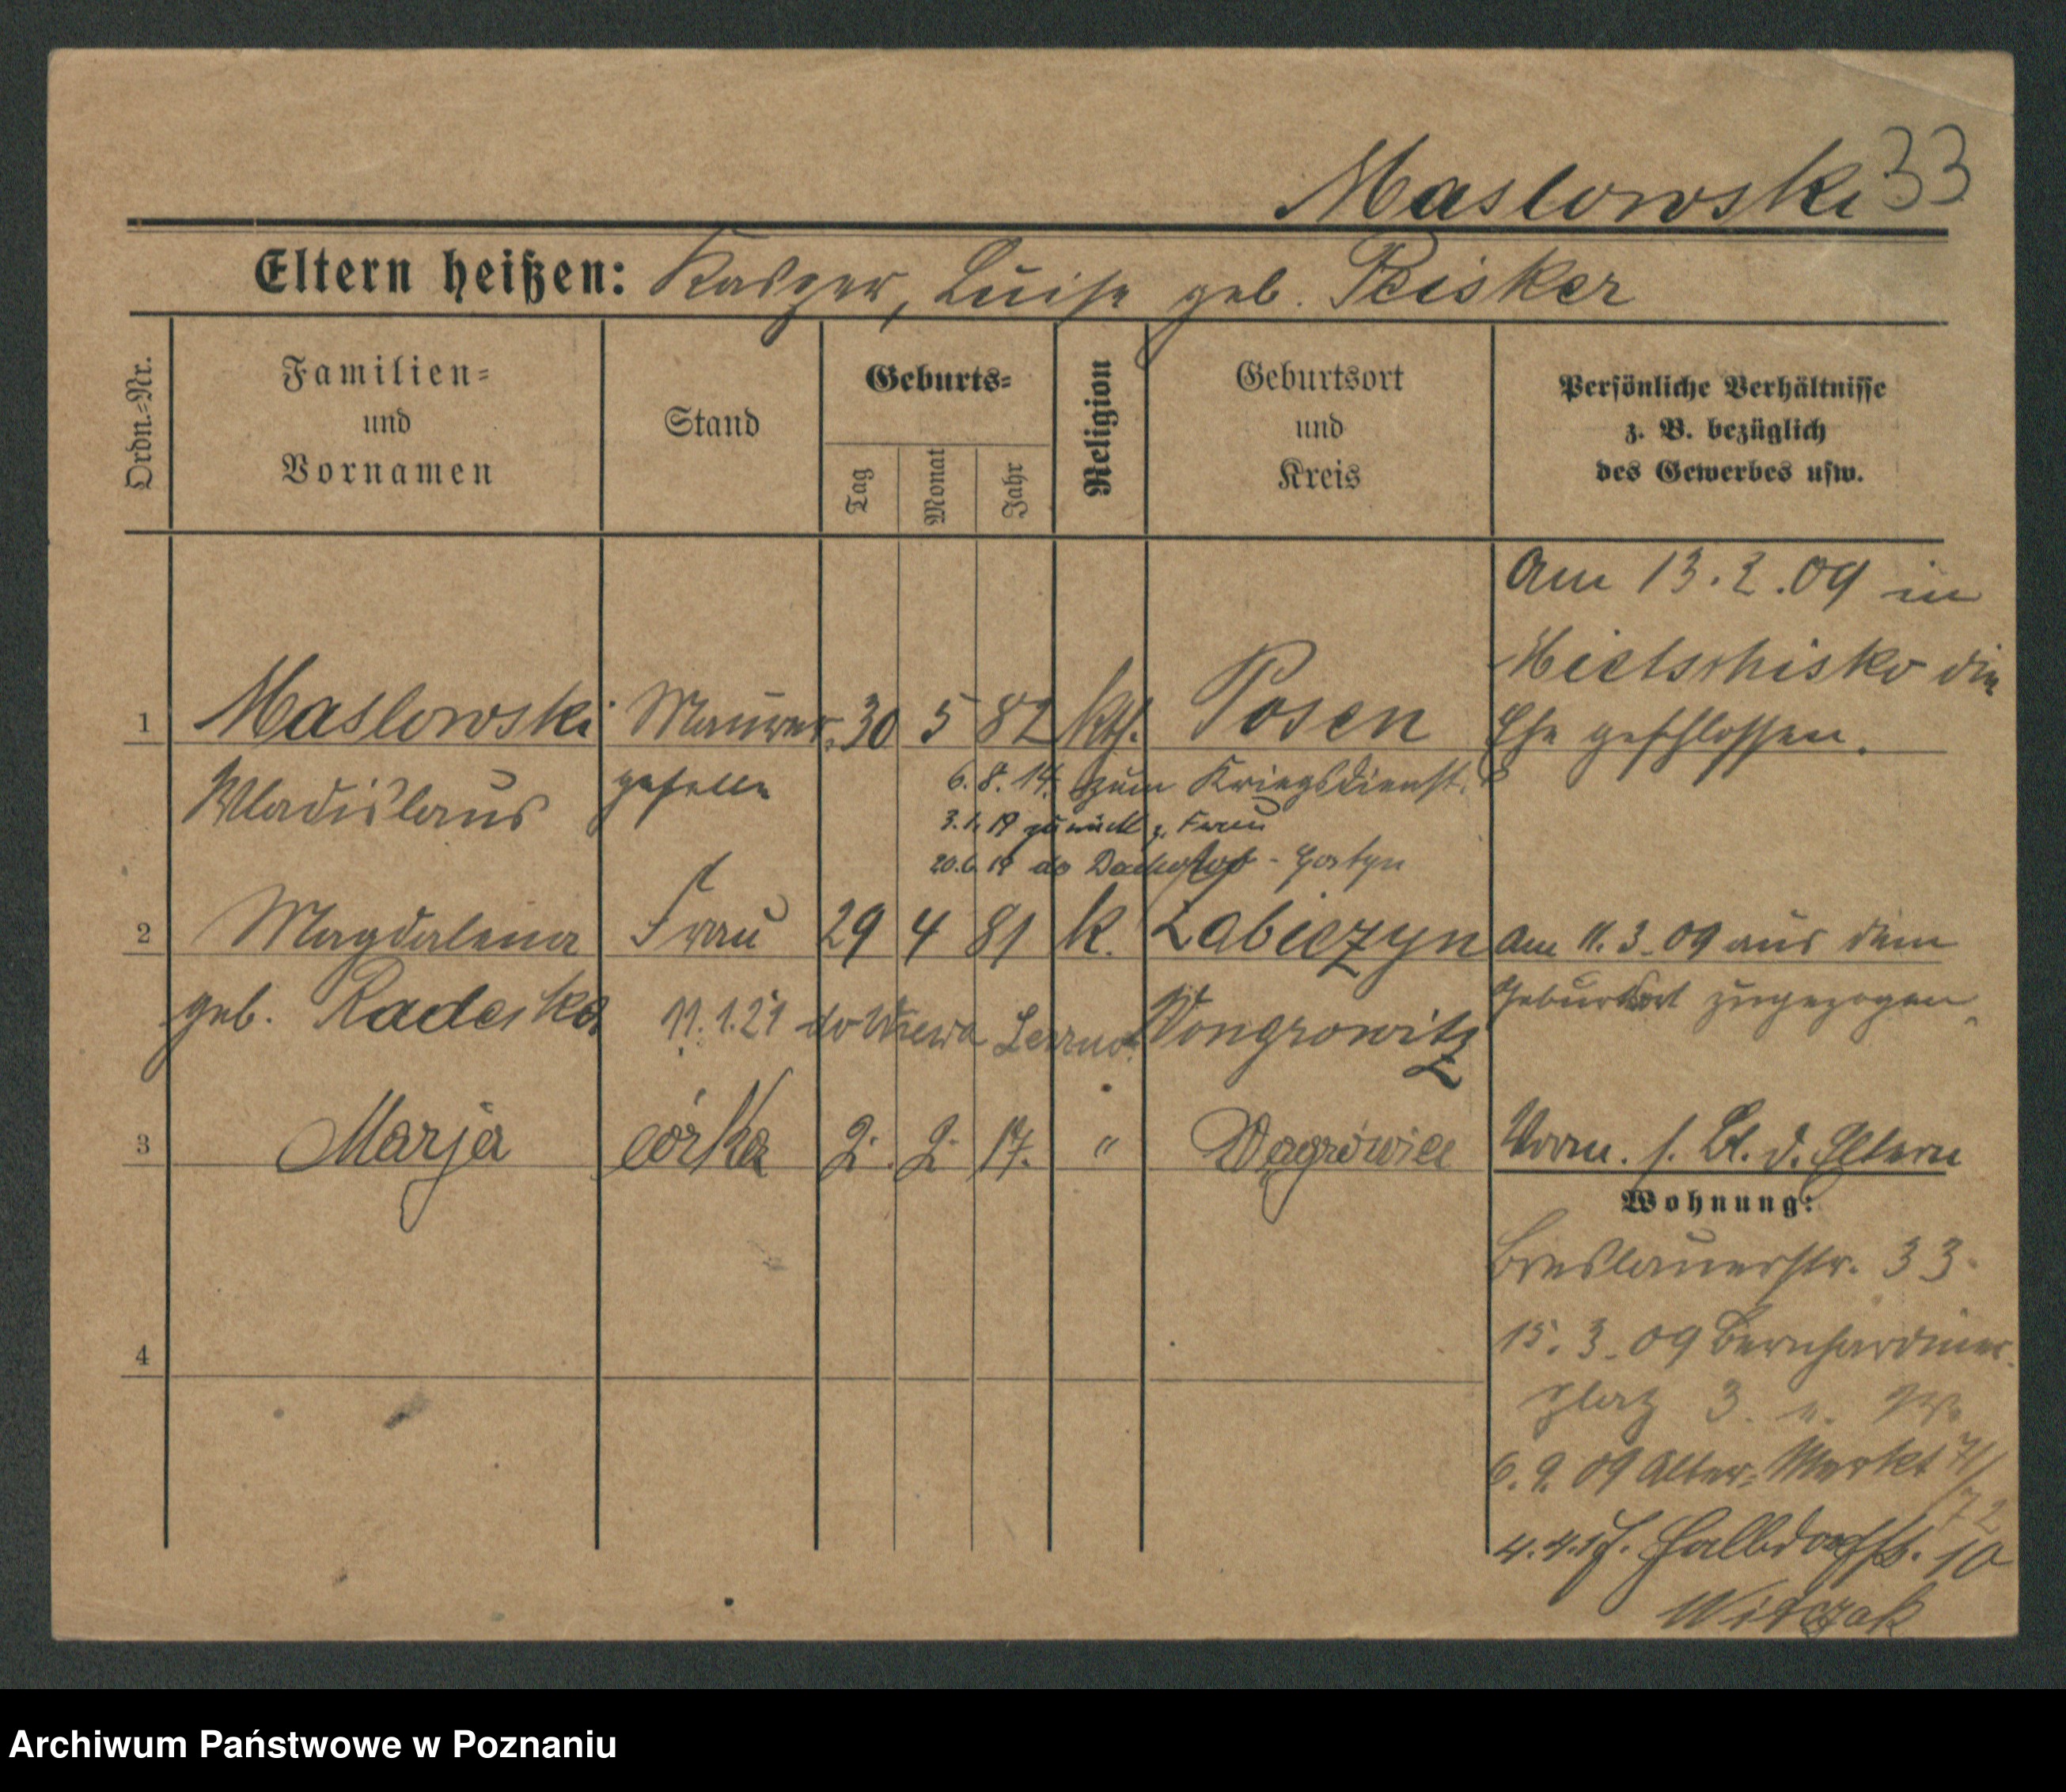 Maslowski 33
Eltern heißen: Kasper, Luise geb. Peisker
Ordn.=Nr.
Familien=
und
Vornamen
Stand
Geburts=
Tag
Monat
Jahr
Religion
Geburtsort
und
Kreis
Persönliche Verhältnisse
z. B. bezüglich
des Gewerbes usw.
Am 13.2.09 in
Mietschisko die
Ehe geschlossen.
1 Maslowski Maurer= 30 5 82 kth. Posen
Wladislaus geselle
6.8.14. zum Kriegsdienst.
3.1.19 zurück z. Frau
20.6.19 do - Gostyn
2 Magdalena Frau 29 4 81 k. Labiczyn Am 11.3.09 aus dem
geb. Wongrowitz Geburtsort zugezogen
11.1.21 do
3 Marja córka 2. 2. 17. " Wągrówiec Vorm. s. Bl. d. Eltern
Wohnung:
Breslauerstr. 33.
15.3.09 Bernhardiner=
platz 3.
6.9.09 Alter=Markt 71/
72
4.4.17. Halbdorfstr. 10
Witczak
4
Archiwum Państwowe w Poznaniu